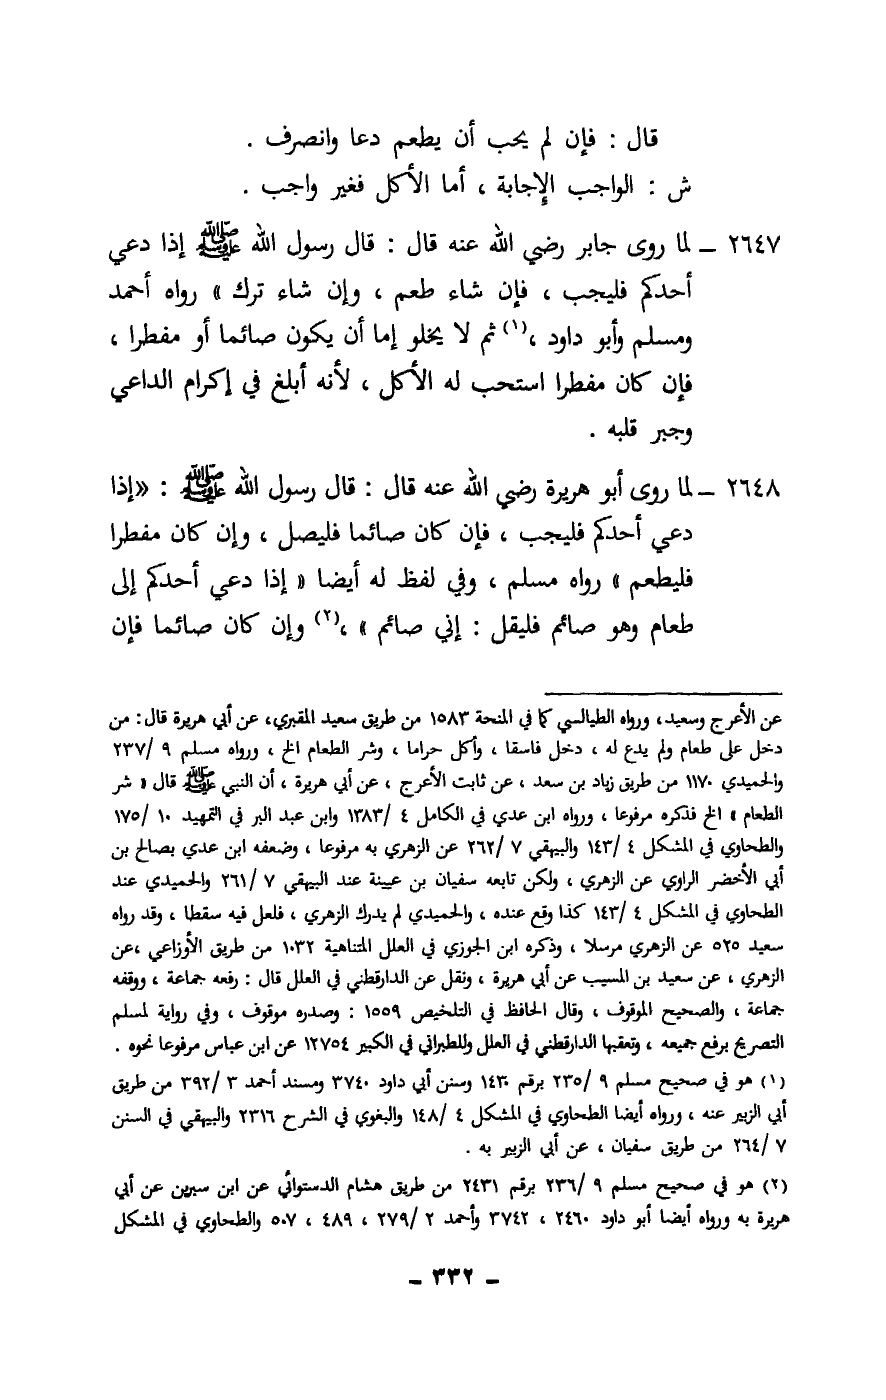 قال : فإن لم يحب أن يطعم دعا وانصرف .
ش : الواجب الإجابة ، أما الأكل فغير واجب .
٢٦٤٧ – لما روى جابر رضي الله عنه قال : قال رسول الله ﷺ إذا دعي
أحدكم فليجب ، فإن شاء طعم ، وإن شاء ترك » رواه أحمد
ومسلم وأبو داود ،(١) ثم لا يخلو إما أن يكون صائما أو مفطرا ،
فإن كان مفطرا استحب له الأكل ، لأنه أبلغ في إكرام الداعي
وجبر قلبه .
٢٦٤٨ – لما روى أبو هريرة رضي الله عنه قال : قال رسول الله ﷺ : «إذا
دعي أحدكم فليجب ، فإن كان صائما فليصل ، وإن كان مفطرا
فليطعم » رواه مسلم ، وفي لفظ له أيضا « إذا دعي أحدكم إلى
طعام وهو صائم فليقل : إني صائم » ،(٢) وإن كان صائما فإن
عن الأعرج وسعيد، ورواه الطيالسي كما في المنحة ١٥٨٣ من طريق سعيد المقبري، عن أبي هريرة قال: من
دخل على طعام ولم يدع له ، دخل فاسقا ، وأكل حراما ، وشر الطعام الخ ، ورواه مسلم ٩ /٢٣٧
والحميدي ١١٧٠ من طريق زياد بن سعد ، عن ثابت الأعرج ، عن أبي هريرة ، أن النبي ﷺ قال « شر
الطعام » الخ فذكره مرفوعا ، ورواه ابن عدي في الكامل ٤ /١٣٨٣ وابن عبد البر في التمهيد ١٠ /١٧٥
والطحاوي في المشكل ٤ /١٤٣ والبيهقي ٧ /٢٦٢ عن الزهري به مرفوعا ، وضعفه ابن عدي بصالح بن
أبي الأخضر الراوي عن الزهري ، ولكن تابعه سفيان بن عيينة عند البيهقي ٧ /٢٦١ والحميدي عند
الطحاوي في المشكل ٤ /١٤٣ كذا وقع عنده ، والحميدي لم يدرك الزهري ، فلعل فيه سقطا ، وقد رواه
سعيد ٥٢٥ عن الزهري مرسلا ، وذكره ابن الجوزي في العلل المتناهية ١٠٣٢ من طريق الأوزاعي ،عن
الزهري ، عن سعيد بن المسيب عن أبي هريرة ، ونقل عن الدارقطني في العلل قال : رفعه جماعة ، ووقفه
جماعة ، والصحيح الموقوف ، وقال الحافظ في التلخيص ١٥٥٩ : وصدره موقوف ، وفي رواية لمسلم
التصريح برفع جميعه ، وتعقبها الدارقطني في العلل وللطبراني في الكبير ١٢٧٥٤ عن ابن عباس مرفوعا نحوه .
(١) هو في صحيح مسلم ٩ /٢٣٥ برقم ١٤٣٠ وسنن أبي داود ٣٧٤٠ ومسند أحمد ٣ /٣٩٢ من طريق
أبي الزبير عنه ، ورواه أيضا الطحاوي في المشكل ٤ /١٤٨ والبغوي في الشرح ٢٣١٦ والبيهقي في السنن
٧ /٢٦٤ من طريق سفيان ، عن أبي الزبير به .
(٢) هو في صحيح مسلم ٩ /٢٣٦ برقم ٢٤٣١ من طريق هشام الدستوائي عن ابن سيرين عن أبي
هريرة به ورواه أيضا أبو داود ٢٤٦٠ ، ٣٧٤٢ وأحمد ٢ /٢٧٩ ، ٤٨٩ ، ٥٠٧ والطحاوي في المشكل
– ٣٣٢ –